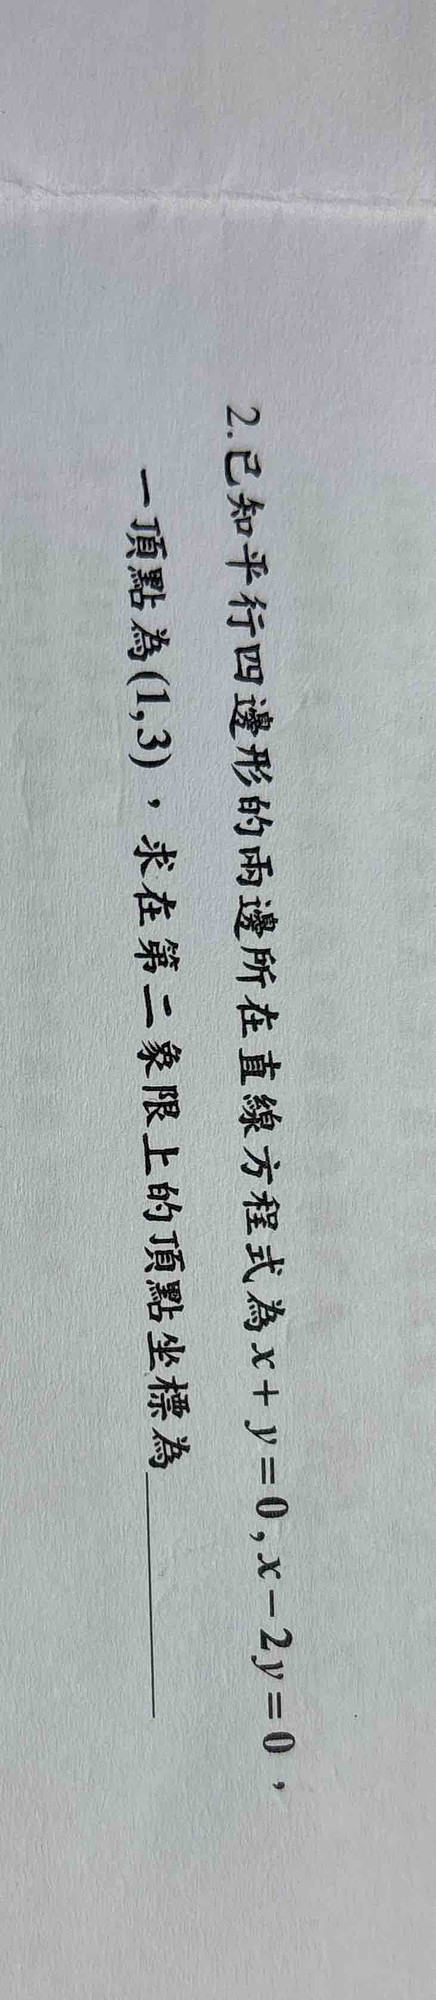 2.已知平行四邊形的兩邊所在直線方程式為x+y=0,x-2y=0，
一頂點為(1,3)，求在第二象限上的頂點坐標為______